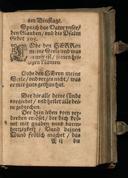 am Dienstage.
Sprich das Vater vnser,
den Glauben, vnd die Psalm
Gebet 103.
LObe den HERRN
meine Seele vnd was
in mir ist, seinen hei-
ligen Namen.
Lobe den HErren meine
Seele, vnd vergiß nicht, was
er mir guts gethan hat.
Der dir alle deine sünde
vergiebet, vnd heilet alle dei-
ne gebrechen.
Der dein leben vom ver-
derben erlöset, der dich krö-
net mit gnaden vnd barm-
hertzigkeit. Vnnd deinen
Mund frölich machet, daß